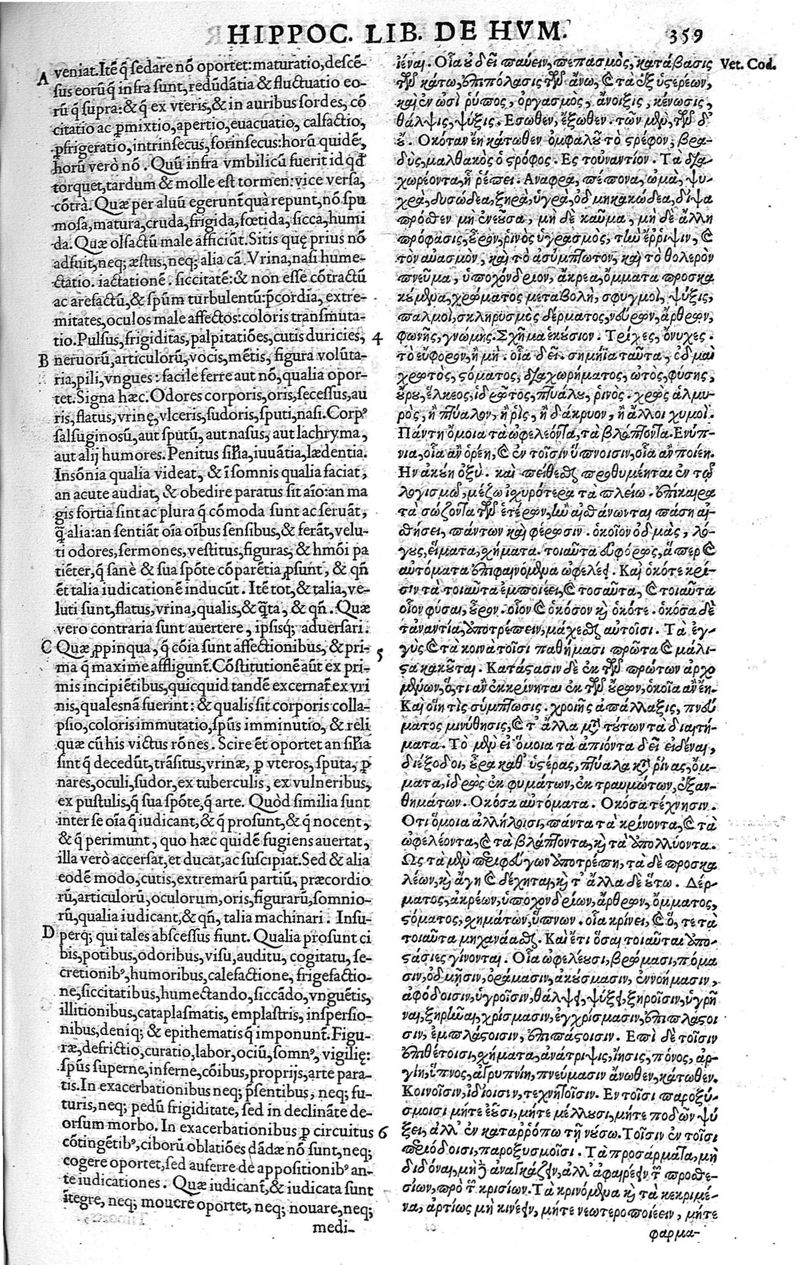 HIPPOC. LIB. DE HVM. 359
A
veniat. Itẽ q̃ sedare nõ oportet: maturatio, descẽ-
sus eorũ q̃ infra sunt, redũdãtia & fluctuatio eo-
rũ q̃ supra: & q̃ ex vteris, & in auribus sordes, cõ
citatio ac p̃mixtio, apertio, euacuatio, calfactio,
p̃frigeratio, intrinsecus, forinsecus: horũ quidẽ,
horũ verò nõ. Quũ infra vmbilicũ fuerit id qđ
torquet, tardum & molle est tormen: vice versa,
cõtrà. Quæ per aluũ egerunt quà repunt, nõ spu
mosa, matura, cruda, frigida, fœtida, sicca, humi
da. Quæ olfactũ male afficiũt. Sitis quę prius nõ
adfuit, neq; æstus, neq; alia cã. Vrina, nasi hume-
ctatio. iactationẽ. siccitatẽ: & non esse cõtractũ
ac arefactũ, & spũm turbulentũ: p̃cordia, extre-
mitates, oculos male affectos: coloris transmuta-
tio. Pulsus, frigiditas, palpitatiões, cutis duricies, 4
B
neruorũ, articulorũ, vocis, mẽtis, figura volũta-
ria, pili, vngues: facile ferre aut nõ, qualia opor-
tet. Signa hæc. Odores corporis, oris, secessus, au
ris, flatus, vrinę, vlceris, sudoris, sputi, nasi. Corpꝰ
salsuginosũ, aut sputũ, aut nasus, aut lachryma,
aut alij humores. Penitus sĩlia, iuuãtia, lædentia.
Insõnia qualia videat, & ĩ somnis qualia faciat,
an acute audiat, & obedire paratus sit aĩo: an ma
gis fortia sint ac plura q̃ cõmoda sunt ac seruãt,
q̃ alia: an sentiãt oĩa oĩbus sensibus, & ferãt, velu-
ti odores, sermones, vestitus, figuras, & hmõi pa
tiẽter, q̃ sanè & sua spõte cõparẽtia p̃sunt, & qñ
et talia iudicationẽ inducũt. Itẽ tot, & talia, ve-
luti sunt, flatus, vrina, qualis, & q̃ta, & qñ. Quæ
vero contraria sunt auertere, ipsisq; aduersari.
C
Quæ p̃pinqua, & cõia sunt affectionibus, & pri- 5
ma q̃ maxime affligunt. Cõstitutionẽ aũt ex pri-
mis incipiẽtibus, quicquid tandẽ excernat ex vri
nis, qualesnã fuerint: & qualis sit corporis colla-
psio, coloris immutatio, spũs imminutio, & reli
quæ cũ his victus rõnes. Scire et oportet an sĩlia
sint q̃ decedũt, trãsitus, vrinæ, p̃ vteros, sputa, p̃
nares, oculi, sudor, ex tuberculis, ex vulneribus,
ex pustulis, q̃ sua spõte, q̃ arte. Quòd similia sunt
inter se oĩa q̃ iudicant, & q̃ prosunt, & q̃ nocent,
& q̃ perimunt, quo hæc quidẽ fugiens auertat,
illa verò accersat, et ducat, ac suscipiat. Sed & alia
eodẽ modo, cutis, extremarũ partiũ, præcordio
rũ, articulorũ, oculorum, oris, figurarũ, somnio-
rũ, qualia iudicant, & qñ, talia machinari. Insu-
D
perq; qui tales abscessus fiunt. Qualia prosunt ci
bis, potibus, odoribus, visu, auditu, cogitatu, se-
cretionibꝰ, humoribus, calefactione, frigefactio-
ne, siccitatibus, humectando, siccãdo, vnguẽtis,
illitionibus, cataplasmatis, emplastris, inspersio-
nibus, deniq; & epithematis q̃ imponunt̃. Figu-
ræ, defrictio, curatio, labor, ociũ, somnꝰ, vigilię:
spũs superne, inferne, cõibus, proprijs, arte para-
tis. In exacerbationibus neq; p̃sentibus, neq; fu-
turis, neq; pedũ frigiditate, sed in declinãte de-
orsum morbo. In exacerbationibus p̃ circuitus 6
cõtingẽtibꝰ, ciborũ oblatiões dãdæ nõ sunt, neq;
cogere oportet, sed auferre de appositionibꝰ an-
te iudicationes. Quæ iudicant, & iudicata sunt
ĩtegre, neq; mouere oportet, neq; nouare, neq;
medi-
Vet. Cod.
ἰέναι. Οἷα οὐ δεῖ παύειν, πεπασμὸς, κατάβασις
τῶν κάτω, ἐπιπόλασις τῶν ἄνω, καὶ τὰ ἐξ ὑστερέων,
καὶ ἐν ὠσὶ ῥύπος, ὀργασμὸς, ἄνοιξις, κένωσις,
θάλψις, ψύξις. Ἔσωθεν, ἔξωθεν. τῶν μὲν, τῶν δ᾽
οὔ. Ὁκόταν ἔῃ κάτωθεν ὀμφαλοῦ τὸ στρέφον, βρα-
δὺς, μαλθακὸς ὁ στρόφος. Ἐς τοὐναντίον. Τὰ δια-
χωρέοντα, ᾗ ῥέπει. Ἄναφρα, πέπονα, ὠμὰ, ψυ-
χρὰ, δυσώδεα, ξηρὰ, ὑγρὰ, ὀδμὴ κακώδεα, δίψα
πρόσθεν μὴ ἐνεοῦσα, μὴ δὲ καῦμα, μὴ δὲ ἄλλη
πρόφασις, οὖρον, ῥινὸς ὑγρασμὸς, τὴν ἔρριψιν, καὶ
τὸν αὐασμὸν, καὶ τὸ ἀσύμπτωτον, καὶ τὸ θολερὸν
πνεῦμα, ὑποχόνδριον, ἄκρεα, ὄμματα προσκα
κούμενα, χρώματος μεταβολὴ, σφυγμοὶ, ψύξις,
παλμοὶ, σκληρυσμὸς δέρματος, νεύρων, ἄρθρων,
φωνῆς, γνώμης. Σχῆμα ἑκούσιον. Τρίχες, ὄνυχες.
τὸ εὔφορον, ἢ μὴ. οἷα δεῖ. σημήϊα ταῦτα, ὀδμαὶ
χρωτὸς, στόματος, διαχωρήματος, ὠτὸς, φύσης,
οὔρου, ἕλκεος, ἱδρῶτος, πτυάλου, ῥινός. χρὼς ἁλμυ-
ρὸς, ἢ πτύαλον, ἢ ῥὶς, ἢ δάκρυον, ἢ ἄλλοι χυμοί.
Πάντη ὅμοια τὰ ὠφελέοντα, τὰ βλάπτοντα. Ἐνύπ-
νια, οἷα ἂν ὁρέῃ, καὶ ἐν τοῖσιν ὕπνοισιν, οἷα ἂν ποιέῃ.
Ἢν ἀκούῃ ὀξύ. καὶ πείθεσθαι προθυμέηται ἐν τῷ
λογισμῷ, μέζω ἰσχυρότερα τὰ πλείω. ἐπίκαιρα
τὰ σώζοντα τῶν ἑτέρων, ἢν αἰσθάνωνται πάσῃ αἰ-
σθήσει, πάντων καὶ φέρωσιν. ὁκοῖον ὀδμὰς, λό-
γους, εἵματα, σχήματα. τοιαῦτα εὐφόρως, ἅπερ καὶ
αὐτόματα ἐπιφαινόμενα ὠφελέει. Καὶ ὁκότε κρί-
σιν τὰ τοιαῦτα ἐμποιέει, καὶ τοσαῦτα, καὶ τοιαῦτα
οἷον φῦσαι, οὖρον. οἷον καὶ ὁκόσον καὶ ὁκότε. ὁκόσα δὲ
τἀναντία, ἀποτρέπειν, μάχεσθαι αὐτοῖσι. Τὰ ἐγ-
γὺς καὶ τὰ κοινὰ τοῖσι παθήμασι πρῶτα καὶ μάλι-
στα κακοῦται. Κατάστασιν δὲ ἐκ τῶν πρώτων ἀρχο
μένων, ὅ, τι ἂν ἐκκρίνηται ἐκ τῶν οὔρων, ὁκοῖα ἂν ἔῃ.
Καὶ οἵη τις σύμπτωσις. χροιῆς ἀπάλλαξις, πνεύ
ματος μινύθησις, καὶ τ᾽ ἄλλα μετὰ τούτων τὰ διαιτή-
ματα. Τὸ μὲν εἰ ὅμοια τὰ ἀπιόντα δεῖ εἰδέναι,
διέξοδοι, οὖρα καθ᾽ ὑστέρας, πτύαλα κατὰ ῥῖνας, ὄμ-
ματα, ἱδρὼς ἐκ φυμάτων, ἐκ τρωμάτων, ἐξαν-
θημάτων. Ὁκόσα αὐτόματα. Ὁκόσα τέχνῃσιν.
Ὅτι ὅμοια ἀλλήλοισι, πάντα τὰ κρίνοντα, καὶ τὰ
ὠφελέοντα, καὶ τὰ βλάπτοντα, καὶ τὰ ἀπολλύοντα.
Ὡς τὰ μὲν περιφεύγων ἀποτρέπῃ, τὰ δὲ προσκα
λέων, καὶ ἄγῃ καὶ δέχηται, καὶ τ᾽ ἄλλα δὲ οὕτω. Δέρ-
ματος, ἀκρέων, ὑποχονδρίων, ἄρθρων, ὄμματος,
στόματος, σχημάτων, ὕπνων. οἷα κρίνει, καὶ ὅ, τε τὰ
τοιαῦτα μηχανάασθαι. Καὶ ἔτι ὅσαι τοιαῦται ἀπο-
στάσιες γίνονται. Οἷα ὠφελεῦσι, βρώμασι, πόμα
σιν, ὀδμῇσιν, ὁράμασιν, ἀκούσμασιν, ἐννοήμασιν,
ἀφόδοισιν, ὑγροῖσιν, θάλψει, ψύξει, ξηροῖσιν, ὑγρῆ
ναι, ξηρῆναι, χρίσμασιν, ἐγχρίσμασιν, ἐπιπλάστοι
σιν, ἐμπλάστοισιν, ἐπιπάστοισιν. Ἐπὶ δὲ τοῖσιν
ἐπιθέτοισι, σχήματα, ἀνάτριψις, ἴησις, πόνος, ἀρ-
γίη, ὕπνος, ἀγρυπνίη, πνεύμασιν ἄνωθεν, κάτωθεν.
Κοινοῖσιν, ἰδίοισιν, τεχνητοῖσιν. Ἐν τοῖσι παροξυ-
σμοῖσι μήτε ἐοῦσι, μήτε μέλλουσι, μήτε ποδῶν ψύ
ξει, ἀλλ᾽ ἐν καταρρόπῳ τῇ νούσῳ. Τοῖσιν ἐν τοῖσι
περιόδοισι, παροξυσμοῖσι. Τὰ προσάρματα, μὴ
διδόναι, μὴ δ᾽ ἀναγκάζειν, ἀλλ᾽ ἀφαιρεῖν τῶν προσθε-
σίων, πρὸ τῶν κρισίων. Τὰ κρινόμενα καὶ τὰ κεκριμέ-
να, ἀρτίως μὴ κινεῖν, μήτε νεωτεροποιέειν, μήτε
φαρμα-